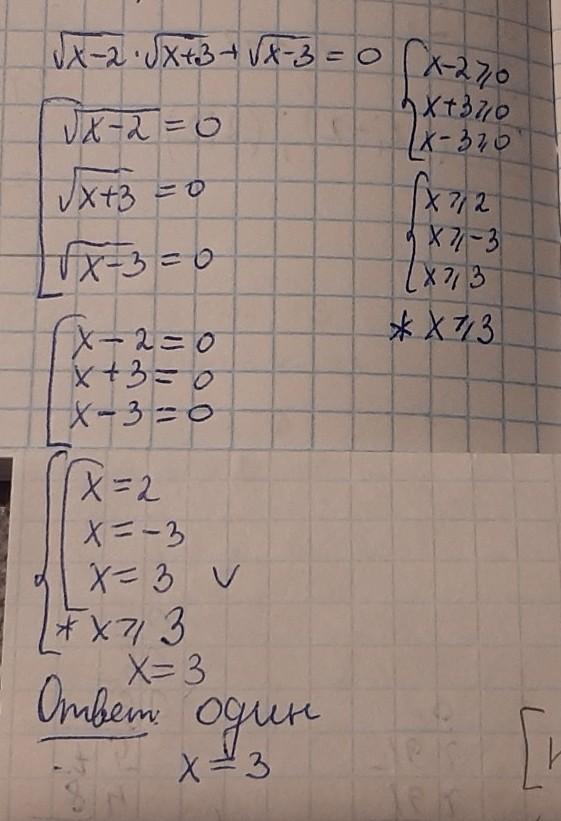 √x-2 · √x+3 + √x-3 = 0
x-2⩾0
x+3⩾0
x-3⩾0
√x-2 = 0
√x+3 = 0
√x-3 = 0
x⩾2
x⩾-3
x⩾3
* x⩾3
x-2=0
x+3=0
x-3=0
x=2
x=-3
x=3 v
* x⩾3
x=3
Ответ: один
x=3